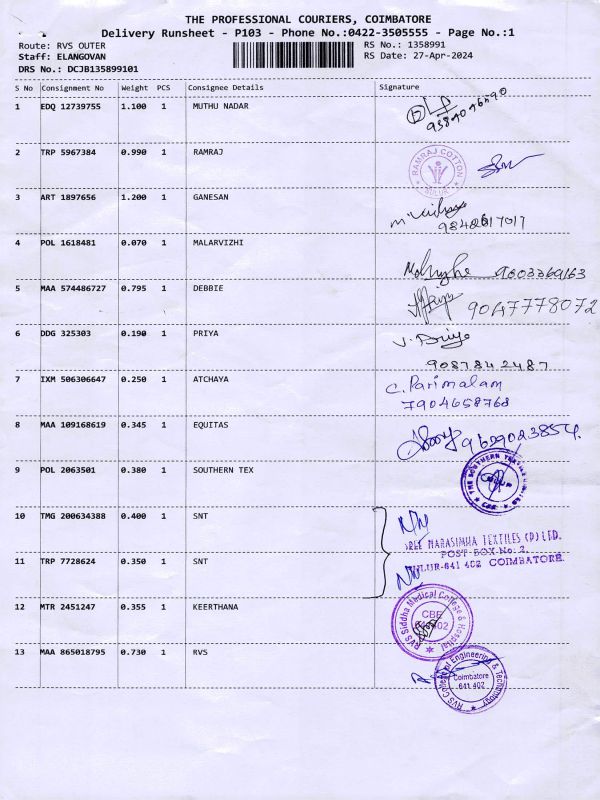 THE PROFESSIONAL COURIERS, COIMBATORE
Delivery Runsheet - P103 - Phone No.:0422-3505555 - Page No.:1
Route: RVS OUTER
RS No.: 1358991
Staff: ELANGOVAN
RS Date: 27-Apr-2024
DRS No.: DCJB135899101
S No Consignment No Weight PCS Consignee Details Signature
1 EDQ 12739755 1.100 1 MUTHU NADAR
2 TRP 5967384 0.990 1 RAMRAJ
RAMRAJ COTTON
SULUR
3 ART 1897656 1.200 1 GANESAN
4 POL 1618481 0.070 1 MALARVIZHI
5 MAA 574486727 0.795 1 DEBBIE
9047778072
6 DDG 325303 0.190 1 PRIYA
V. Priya
9087842487
7 IXM 506306647 0.250 1 ATCHAYA
C. Parimalam
7904658768
8 MAA 109168619 0.345 1 EQUITAS
9629023854
9 POL 2063501 0.380 1 SOUTHERN TEX
THE SOUTHERN
CBE
10 TMG 200634388 0.400 1 SNT
SREE NARASIMHA TEXTILES (P) LTD.
POST BOX No: 2,
11 TRP 7728624 0.350 1 SNT
SULUR-641 402 COIMBATORE.
12 MTR 2451247 0.355 1 KEERTHANA
RVS Siddha Medical College & Hospital
CBE
641 402
13 MAA 865018795 0.730 1 RVS
RVS College of Engineering & Technology
Coimbatore
641 402